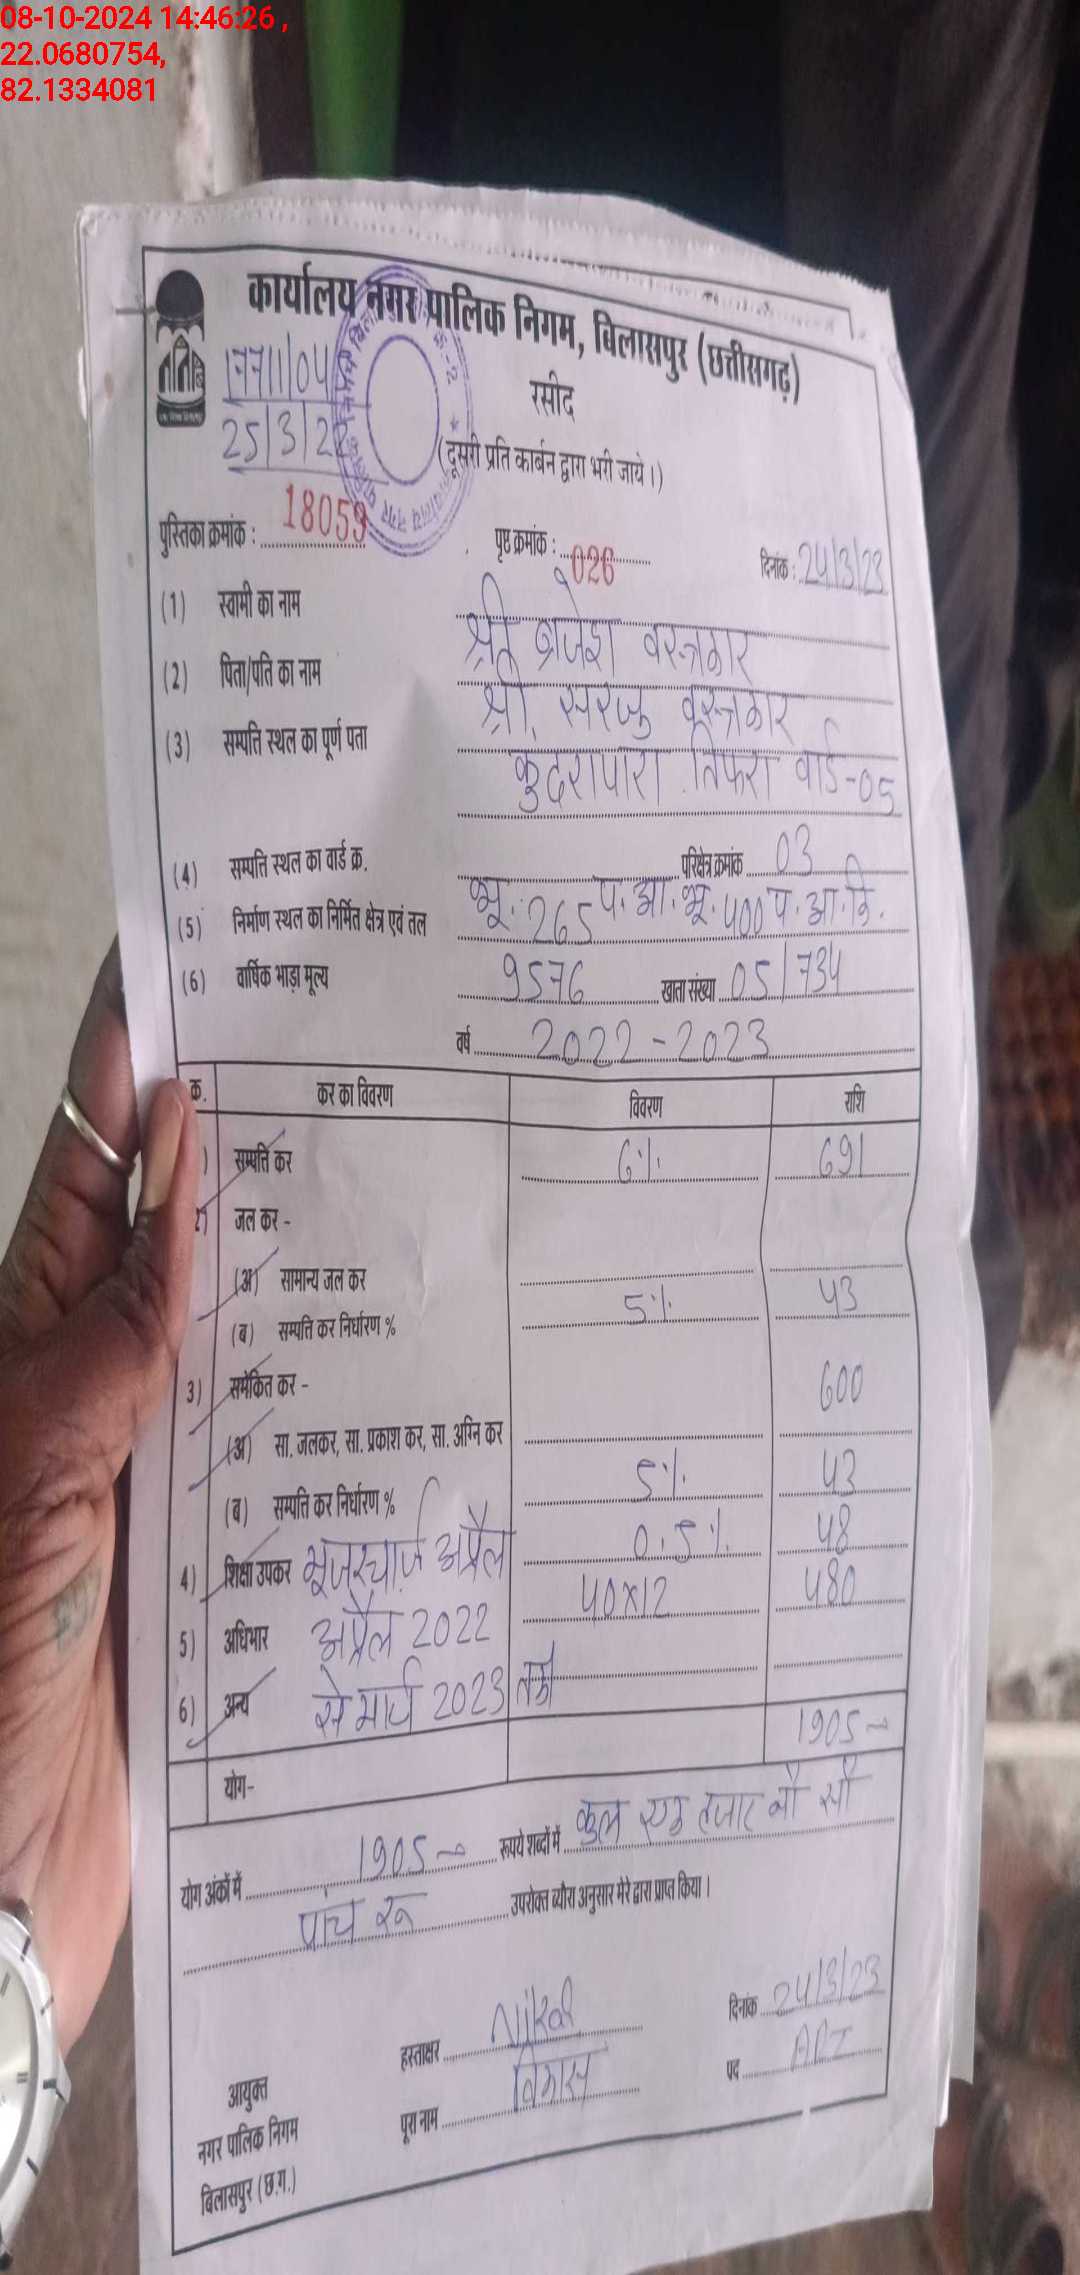 08-10-2024 14:46:26 ,
22.0680754,
82.1334081
कार्यालय नगर पालिक निगम, बिलासपुर (छत्तीसगढ़)
रसीद
25/3/2
(दूसरी प्रति कार्बन द्वारा भरी जाये।)
पुस्तिका क्रमांक : 18059 पृष्ठ क्रमांक : 026 दिनांक : 24/3/23
(1) स्वामी का नाम श्री ब्रजेश वस्त्रकार
(2) पिता/पति का नाम श्री. सरजु वस्त्रकार
(3) सम्पत्ति स्थल का पूर्ण पता कुदरापारा तिफरा वार्ड-05
(4) सम्पत्ति स्थल का वार्ड क्र. परिक्षेत्र क्रमांक 03
(5) निर्माण स्थल का निर्मित क्षेत्र एवं तल भू. 265 प.आ. भू. 400 प.आ.कि.
(6) वार्षिक भाड़ा मूल्य 9576 खाता संख्या 05/734
वर्ष 2022-2023
क. कर का विवरण विवरण राशि
) सम्पत्ति कर 6% 691
2) जल कर -
(अ) सामान्य जल कर
(ब) सम्पत्ति कर निर्धारण % 5% 43
3) समेकित कर - 600
(अ) सा. जलकर, सा. प्रकाश कर, सा. अग्नि कर
(ब) सम्पत्ति कर निर्धारण % 5% 43
4) शिक्षा उपकर 0.5% 48
यूजरचार्ज अप्रैल 40x12 480
5) अधिभार अप्रैल 2022
6) अन्य से मार्च 2023 तक
योग- 1905
योग अंकों में 1905 रूपये शब्दों में कुल एक हजार नौ सौ
पांच रू उपरोक्त ब्यौरा अनुसार मेरे द्वारा प्राप्त किया।
हस्ताक्षर दिनांक 24/3/23
आयुक्त
पूरा नाम विकास पद ARI
नगर पालिक निगम
बिलासपुर (छ.ग.)